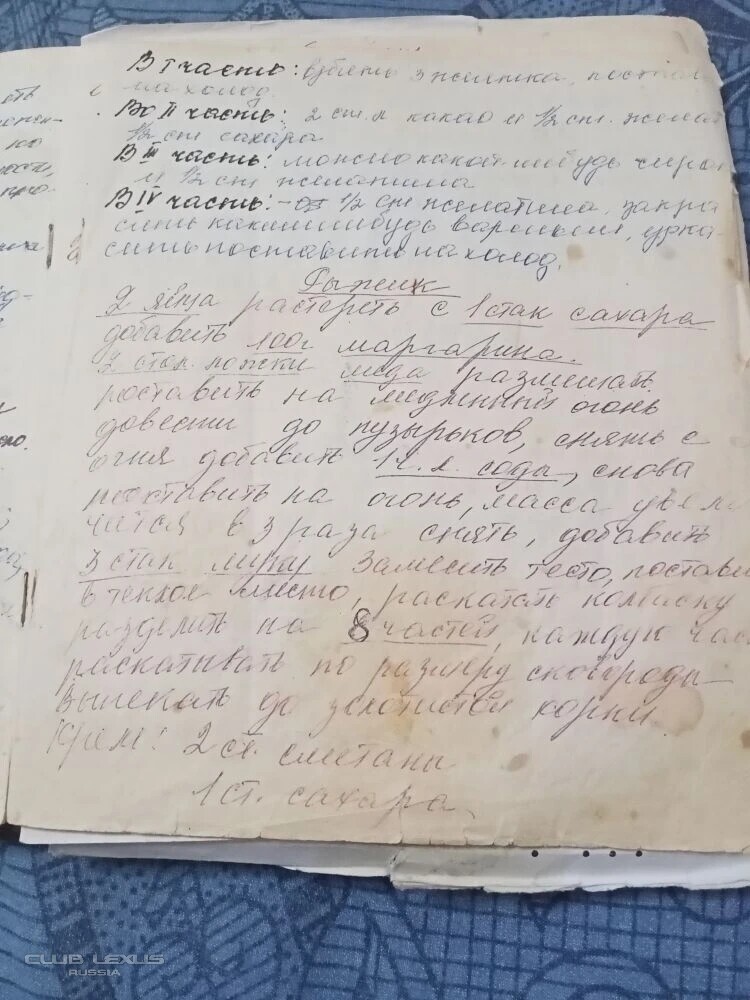 В I часть: взбить 3 желтка, постав
на холод.
Во II часть: 2 ст. л какао и 1/2 ст. желат
1/2 ст сахара
В III часть: можно какой нибудь сироп
и 1/2 ст желатина
В IV часть: 1/2 ст желатина, закра
сить каким нибудь вареньем, украсить поставить на холод.
Рыжик
2 яйца растереть с 1 стак сахара
добавить 100г маргарина.
2 стол. ложки меда размешать
поставить на медленный огонь
довести до пузырьков, снять с
огня добавить 1 ч. л. соды, снова
поставить на огонь, масса увели
чится в 3 раза снять, добавить
3 стак муки замесить тесто, постави
в теплое место, раскатать колбаску
разделить на 8 частей, каждую час
раскатывать по размеру сковороды
выпекать до золотистой корки.
Крем: 2 ст. сметаны
1 ст. сахара
CLUB LEXUS
RUSSIA